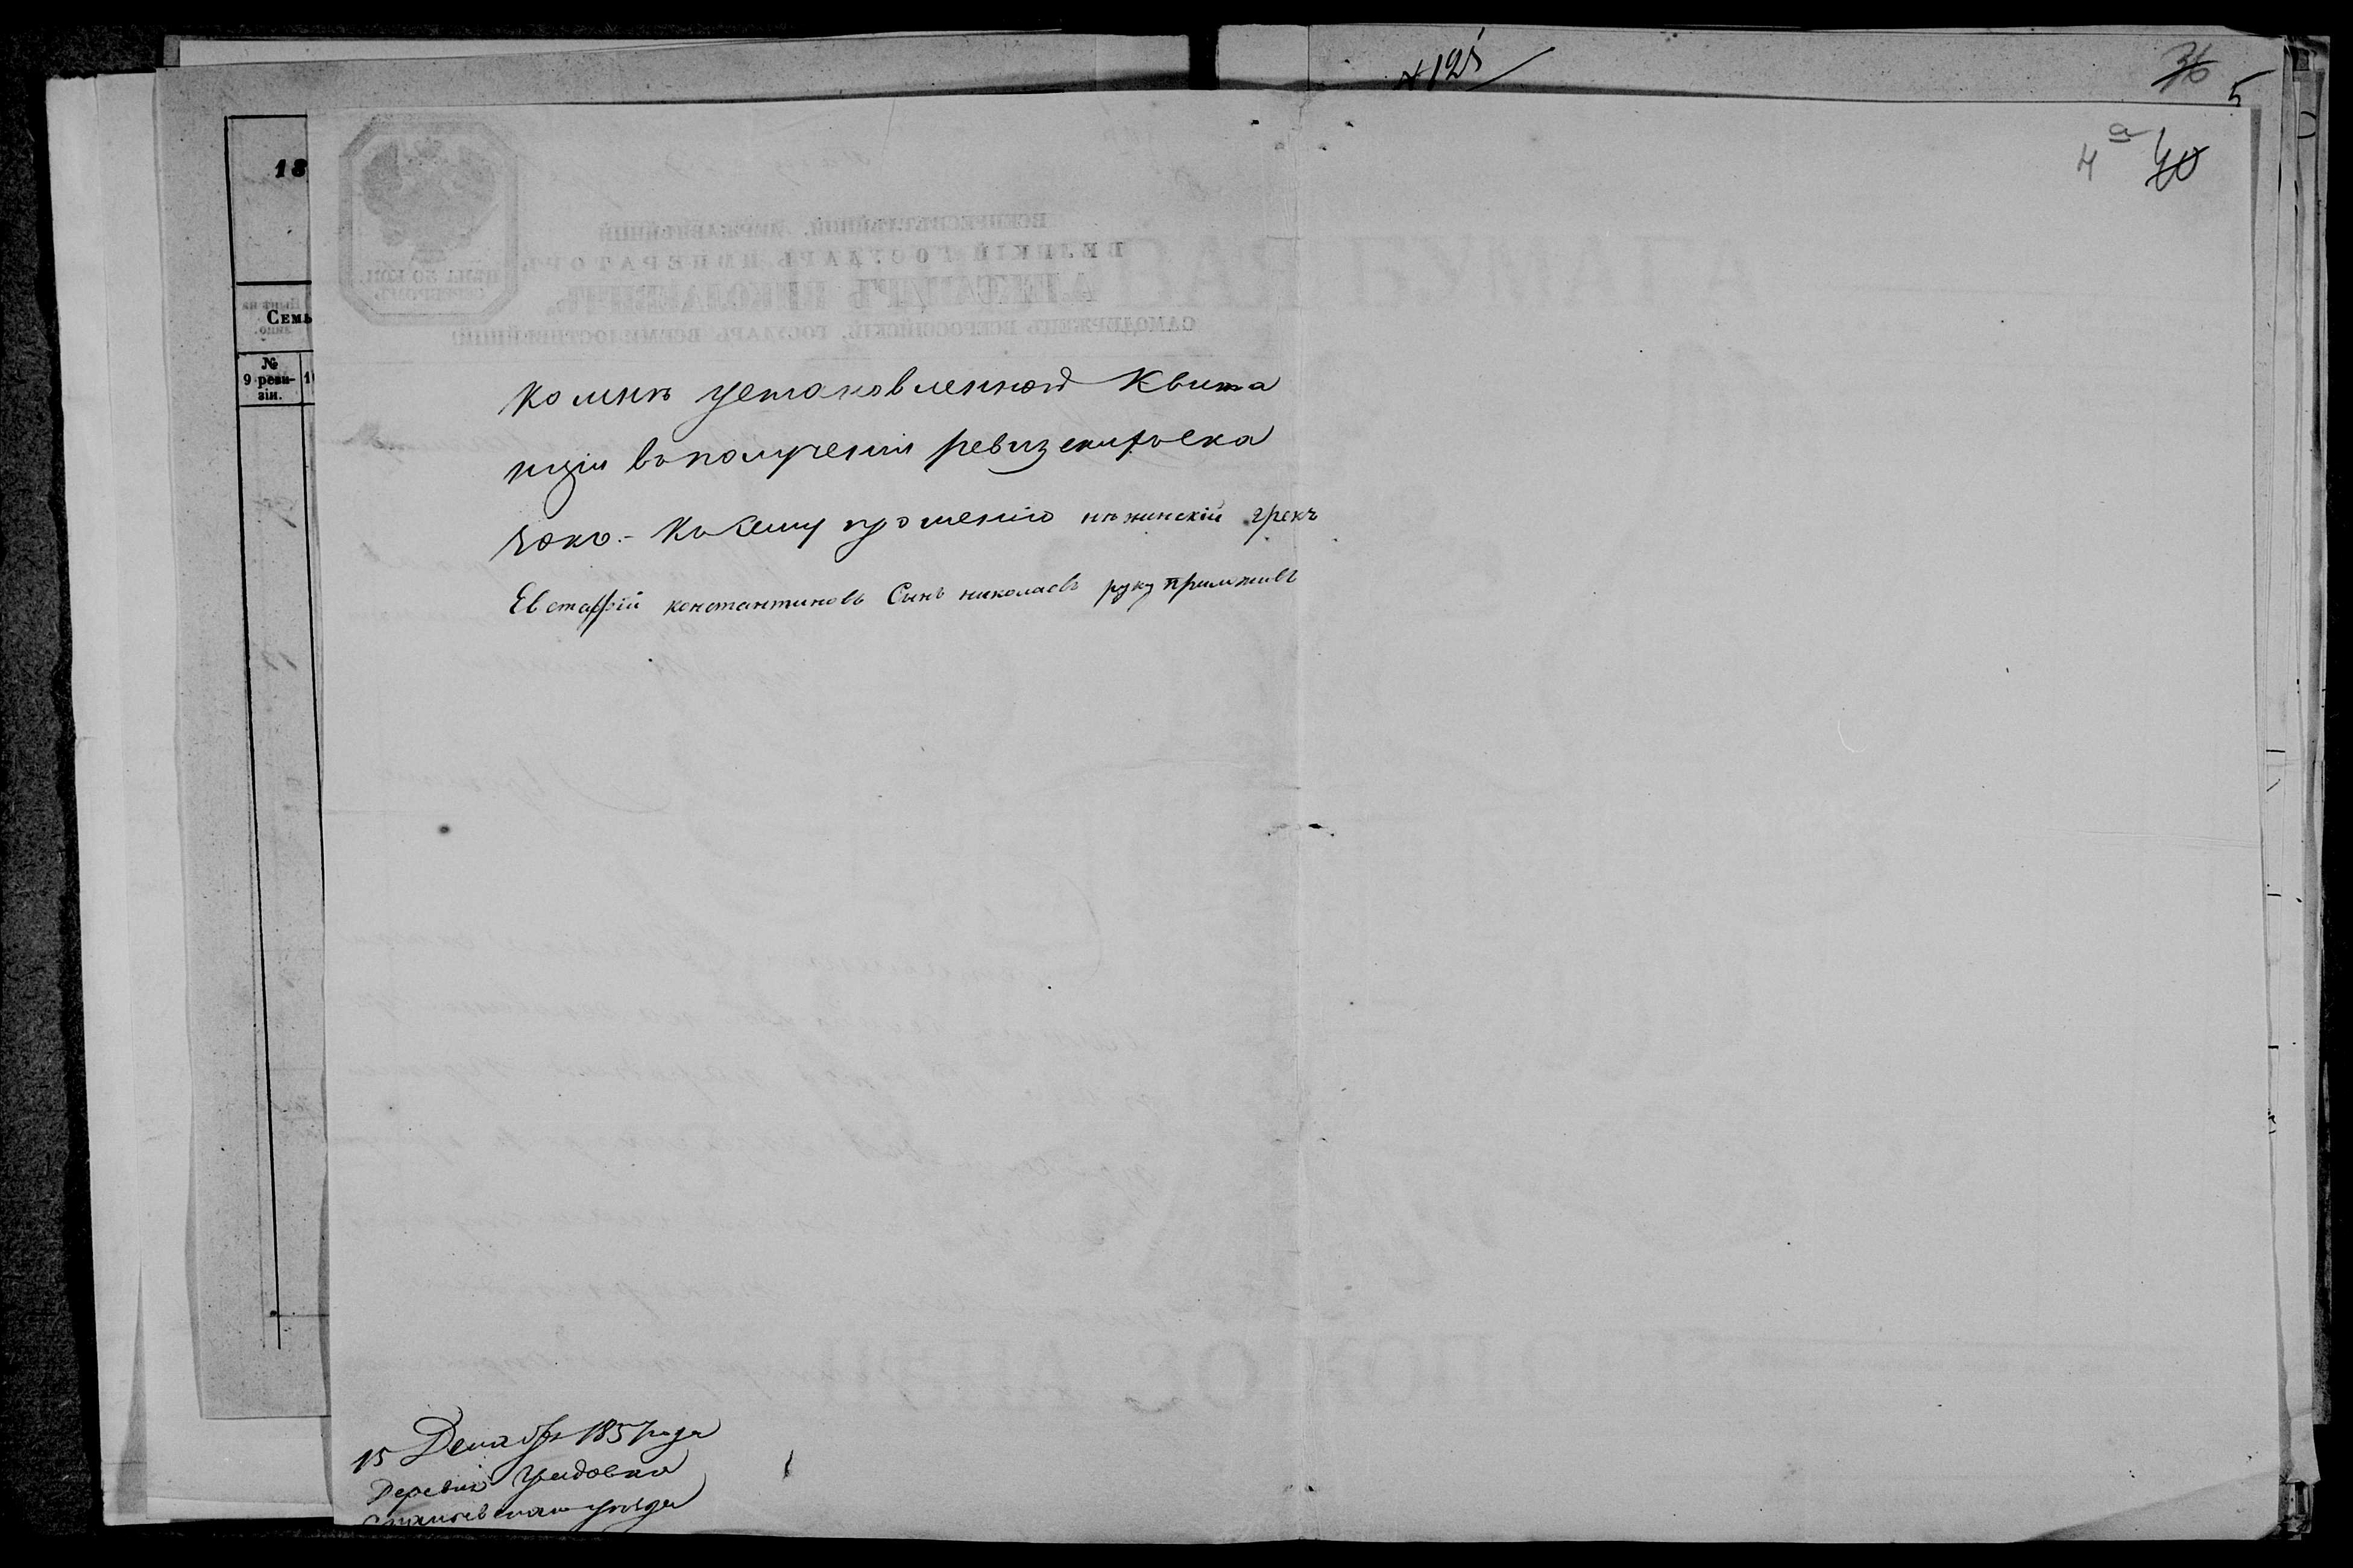 № 125
36
5
4а 40
18
Семь
№
9 реви-
зіи.
ко мнѣ установленной Квита
нціи въ полученіи ревизскихъ ска
зокъ. - Къ сему прошенію нѣжинскій грекъ
Евстафій константиновъ Сынъ николаевъ руку приложилъ
15 Декабря 1857 года
Деревня
уѣзда